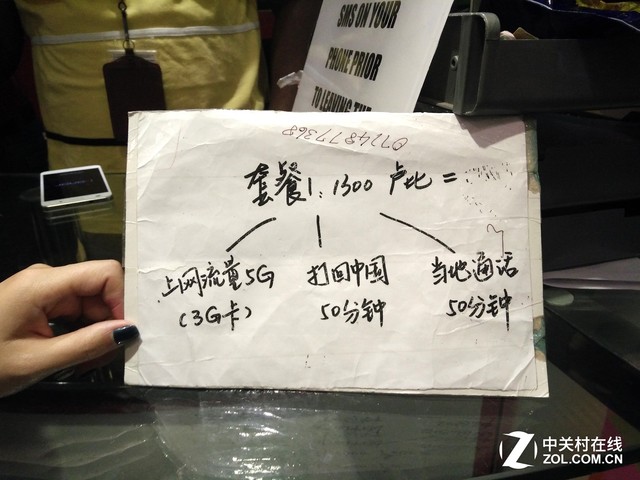 SMS ON YOUR
PHONE PRIOR
TO LEAVING THE
0714877368
套餐1:1300 卢比 =
上网流量5G
(3G卡)
打回中国
50分钟
当地通话
50分钟
中关村在线
ZOL.COM.CN